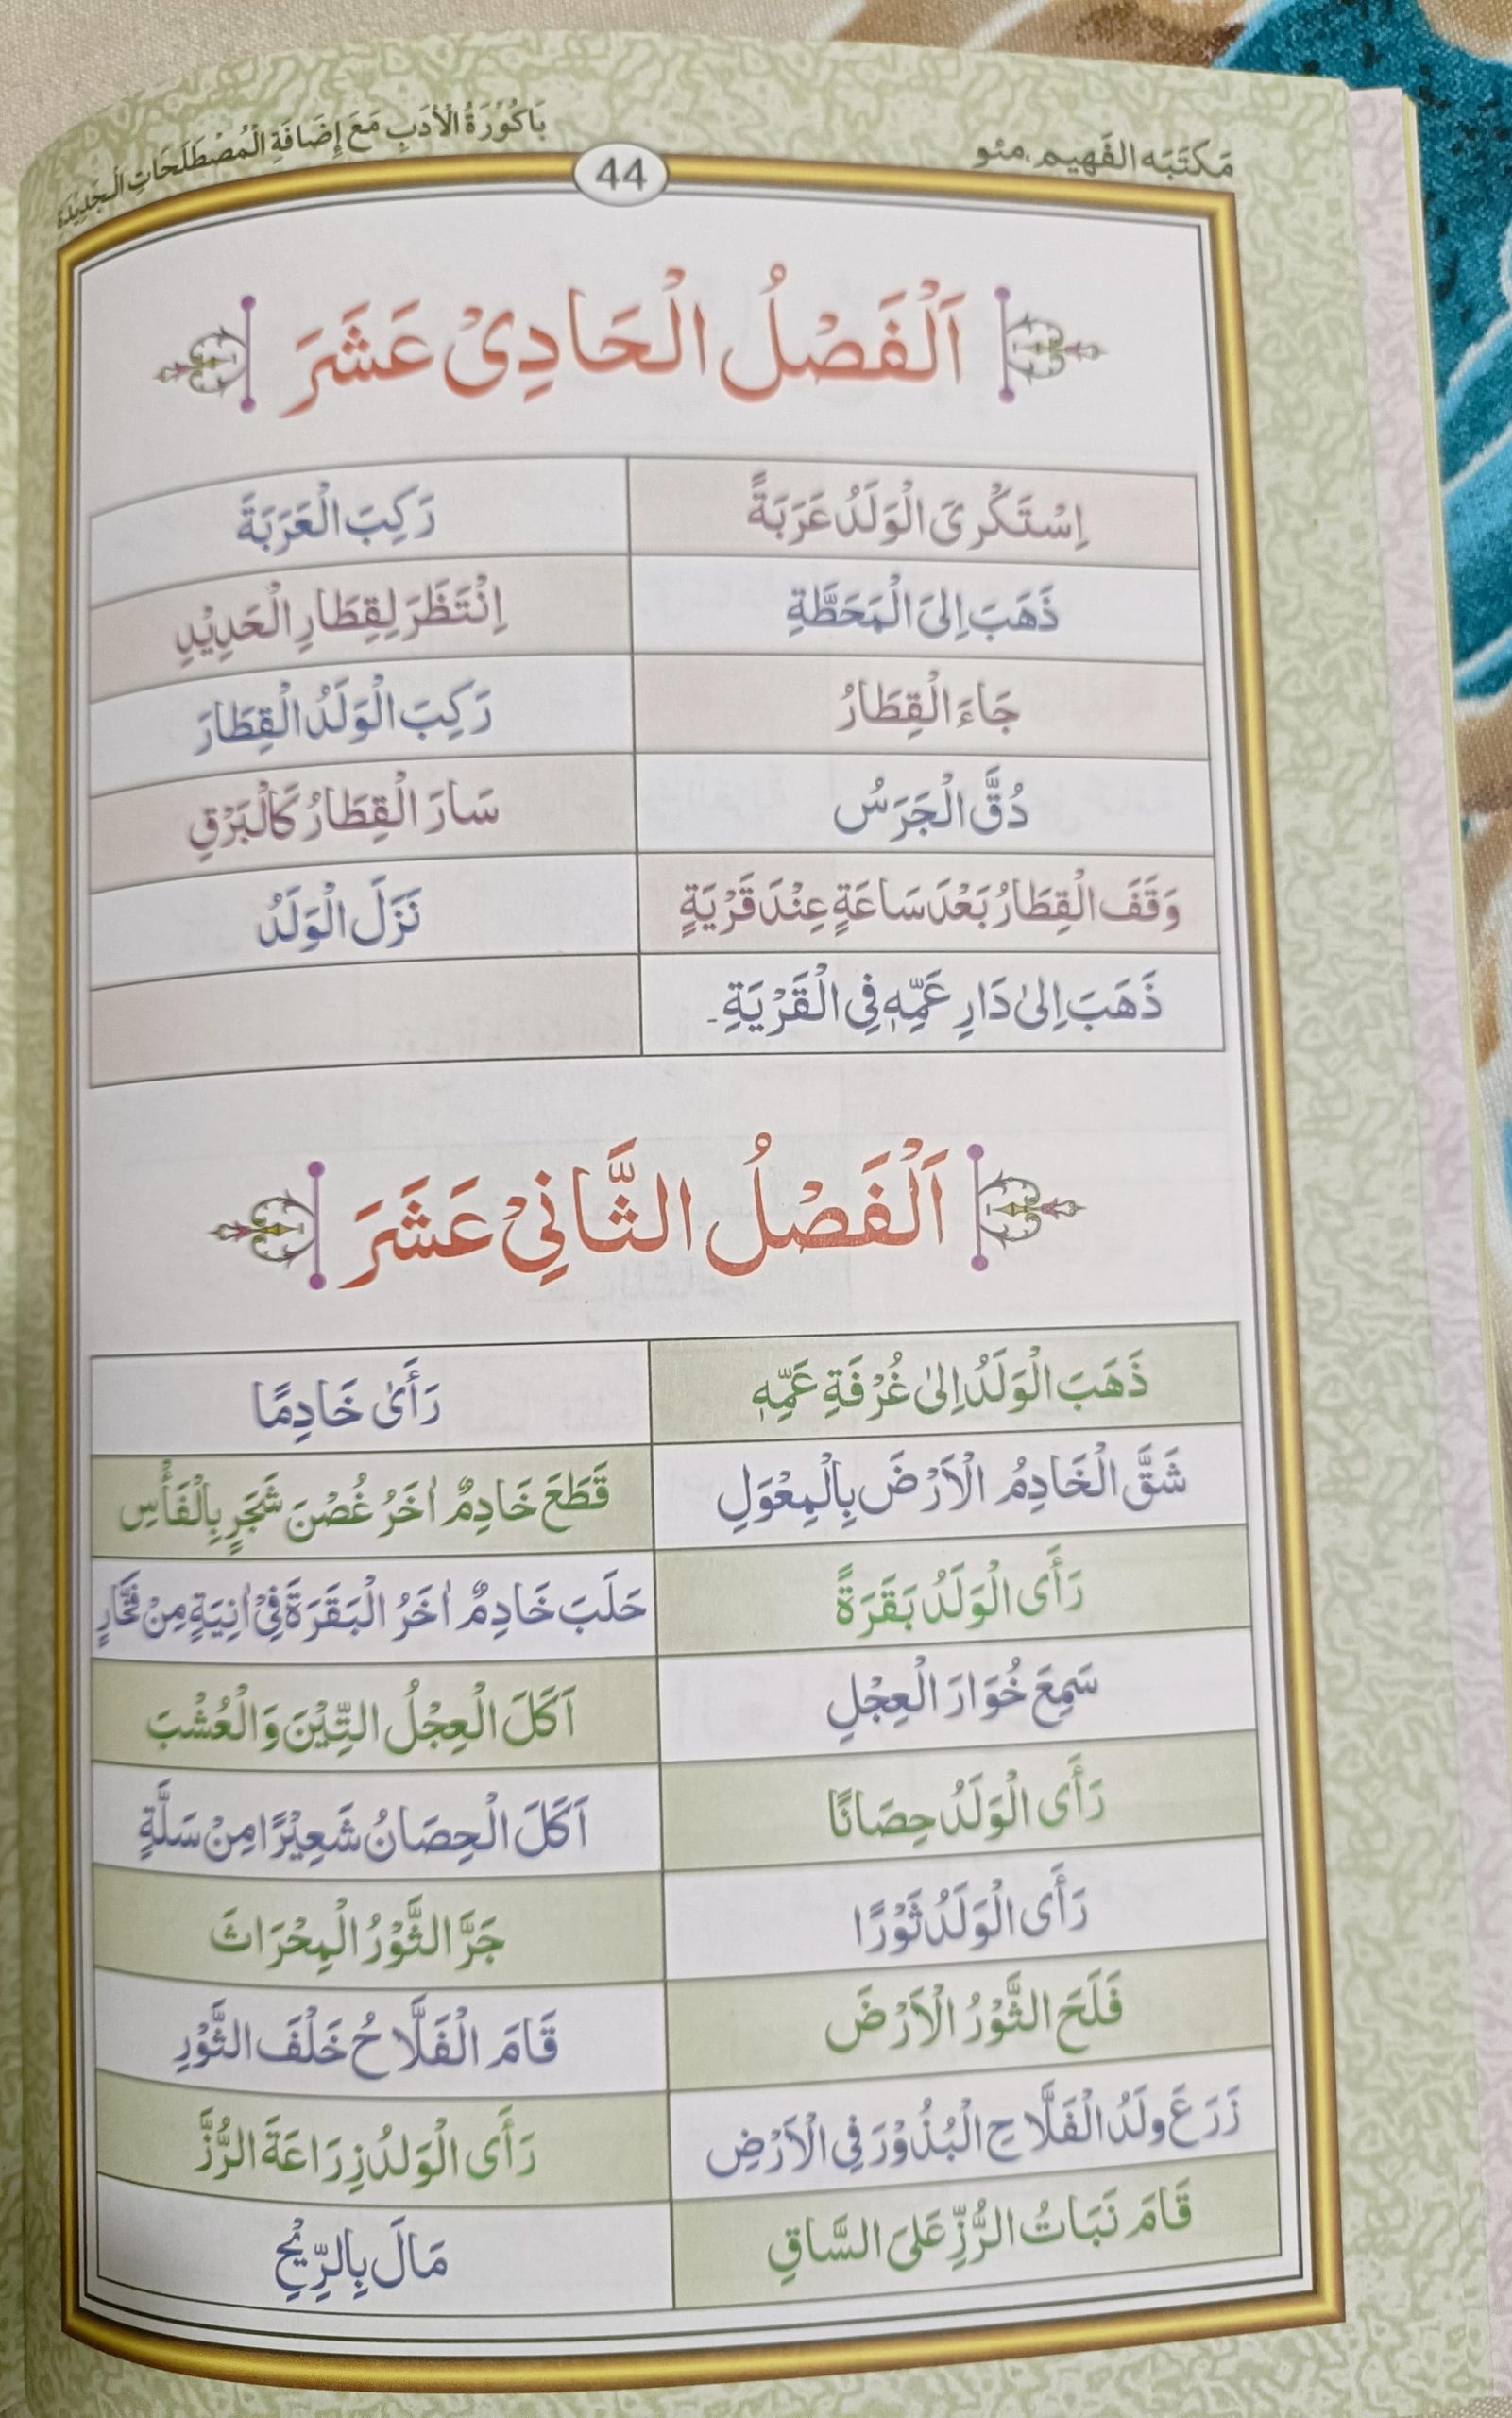 مَكتَبَه الفَهِيم، مئو
44
بَاكُوْرَةُ الْأَدَبِ مَعَ إِضَافَةِ الْمُصْطَلَحَاتِ الْجَدِيْدَة
اَلْفَصْلُ الْحَادِیْ عَشَرَ
اِسْتَكْرىَ الْوَلَدُ عَرَبَةً
رَكِبَ الْعَرَبَةَ
ذَهَبَ اِلىَ الْمَحَطَّةِ
اِنْتَظَرَ لِقِطَارِ الْحَدِيْدِ
جَاءَ الْقِطَارُ
رَكِبَ الْوَلَدُ الْقِطَارَ
دُقَّ الْجَرَسُ
سَارَ الْقِطَارُ كَالْبَرْقِ
وَقَفَ الْقِطَارُ بَعْدَ سَاعَةٍ عِنْدَ قَرْيَةٍ
نَزَلَ الْوَلَدُ
ذَهَبَ اِلىٰ دَارِ عَمِّهٖ فِي الْقَرْيَةِ۔
اَلْفَصْلُ الثَّانِیْ عَشَرَ
ذَهَبَ الْوَلَدُ اِلىٰ غُرْفَةِ عَمِّهٖ
رَأَىٰ خَادِمًا
شَقَّ الْخَادِمُ الْاَرْضَ بِالْمِعْوَلِ
قَطَعَ خَادِمٌ اٰخَرُ غُصْنَ شَجَرٍ بِالْفَأْسِ
رَأَى الْوَلَدُ بَقَرَةً
حَلَبَ خَادِمٌ اٰخَرُ الْبَقَرَةَ فِیْ اٰنِيَةٍ مِنْ فَخَّارٍ
سَمِعَ خُوَارَ الْعِجْلِ
اَكَلَ الْعِجْلُ التِّيْنَ وَالْعُشْبَ
رَأَى الْوَلَدُ حِصَانًا
اَكَلَ الْحِصَانُ شَعِيْرًا مِنْ سَلَّةٍ
رَأَى الْوَلَدُ ثَوْرًا
جَرَّ الثَّوْرُ الْمِحْرَاثَ
فَلَحَ الثَّوْرُ الْاَرْضَ
قَامَ الْفَلَّاحُ خَلْفَ الثَّوْرِ
زَرَعَ ولَدُ الْفَلَّاحِ الْبُذُوْرَ فِي الْاَرْضِ
رَأَى الْوَلدُ زِرَاعَةَ الرُّزَّ
قَامَ نَبَاتُ الرُّزِّ عَلىَ السَّاقِ
مَالَ بِالرِّيْحِ